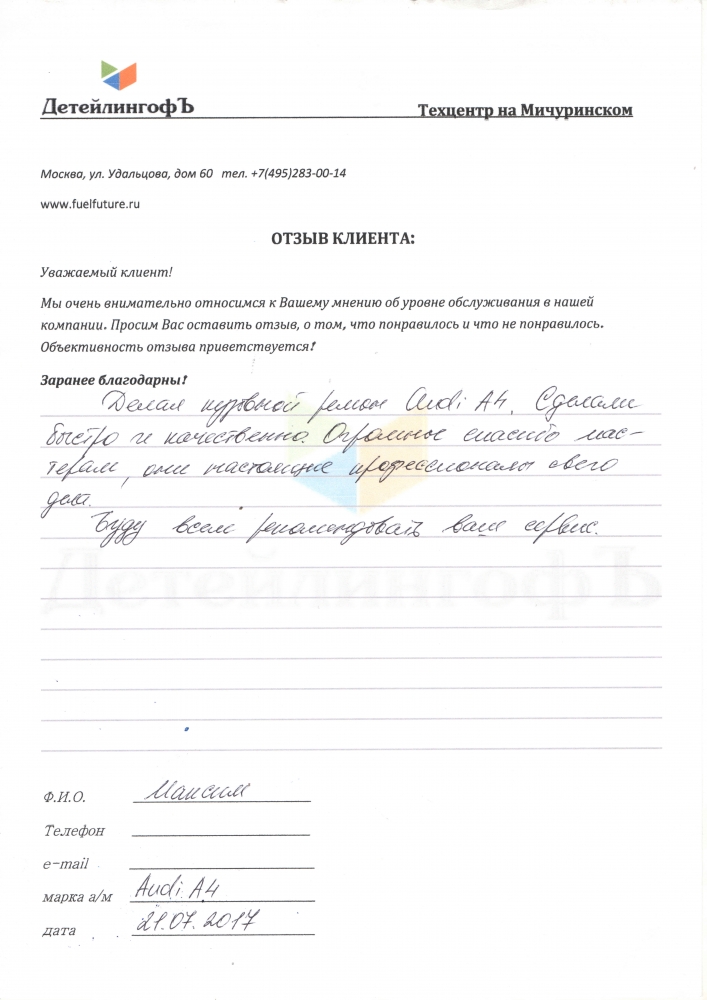 ДетейлингофЪ
Техцентр на Мичуринском
Москва, ул. Удальцова, дом 60 тел. +7(495)283-00-14
www.fuelfuture.ru
ОТЗЫВ КЛИЕНТА:
Уважаемый клиент!
Мы очень внимательно относимся к Вашему мнению об уровне обслуживания в нашей
компании. Просим Вас оставить отзыв, о том, что понравилось и что не понравилось.
Объективность отзыва приветствуется!
Заранее благодарны!
Делал кузовной ремонт Audi A4. Сделали
быстро и качественно. Огромное спасибо мас-
терам, они настоящие профессионалы своего
дела.
Буду всем рекомендовать ваш сервис.
ДетейлингофЪ
Ф.И.О. Максим
Телефон
e-mail
марка а/м Audi A4
дата 21.07.2017